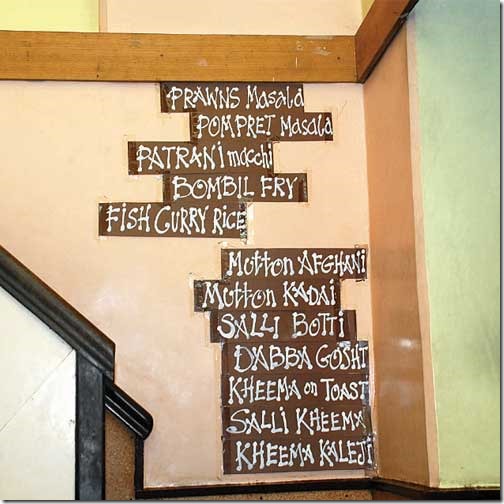 PRAWNS MasaLa
POMPRET MasaLa
PATRANi macchi
BOMBIL FRY
FISH CURRY RICE
MuTTon AFGHANi
MuTTon KADAi
SALLi BOTTi
DABBA GOSHT
KHEEMA on TOAST
SALLi KHEEMA
KHEEMA KALEJi